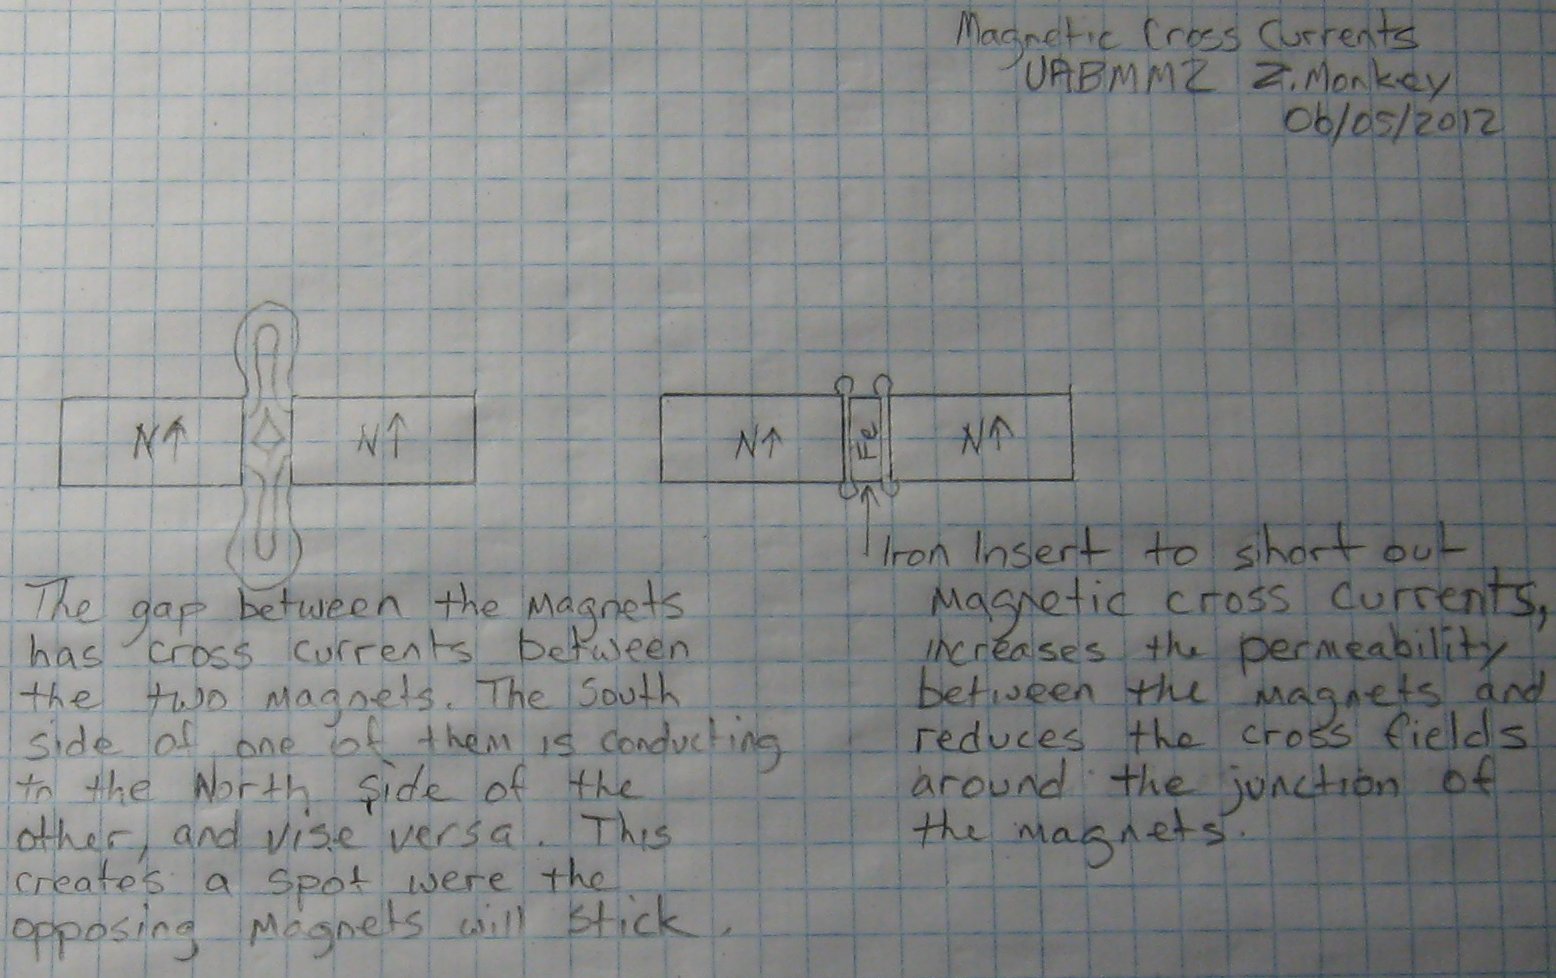 Magnetic Cross Currents
UABMMZ Z.Monkey
06/05/2012
N↑
N↑
N↑
Fe
N↑
The gap between the Magnets
has cross currents between
the two magnets. The South
side of one of them is conducting
to the North side of the
other, and vise versa. This
creates a spot were the
opposing Magnets will stick.
Iron Insert to short out
Magnetic cross currents,
increases the permeability
between the magnets and
reduces the cross fields
around the junction of
the magnets.